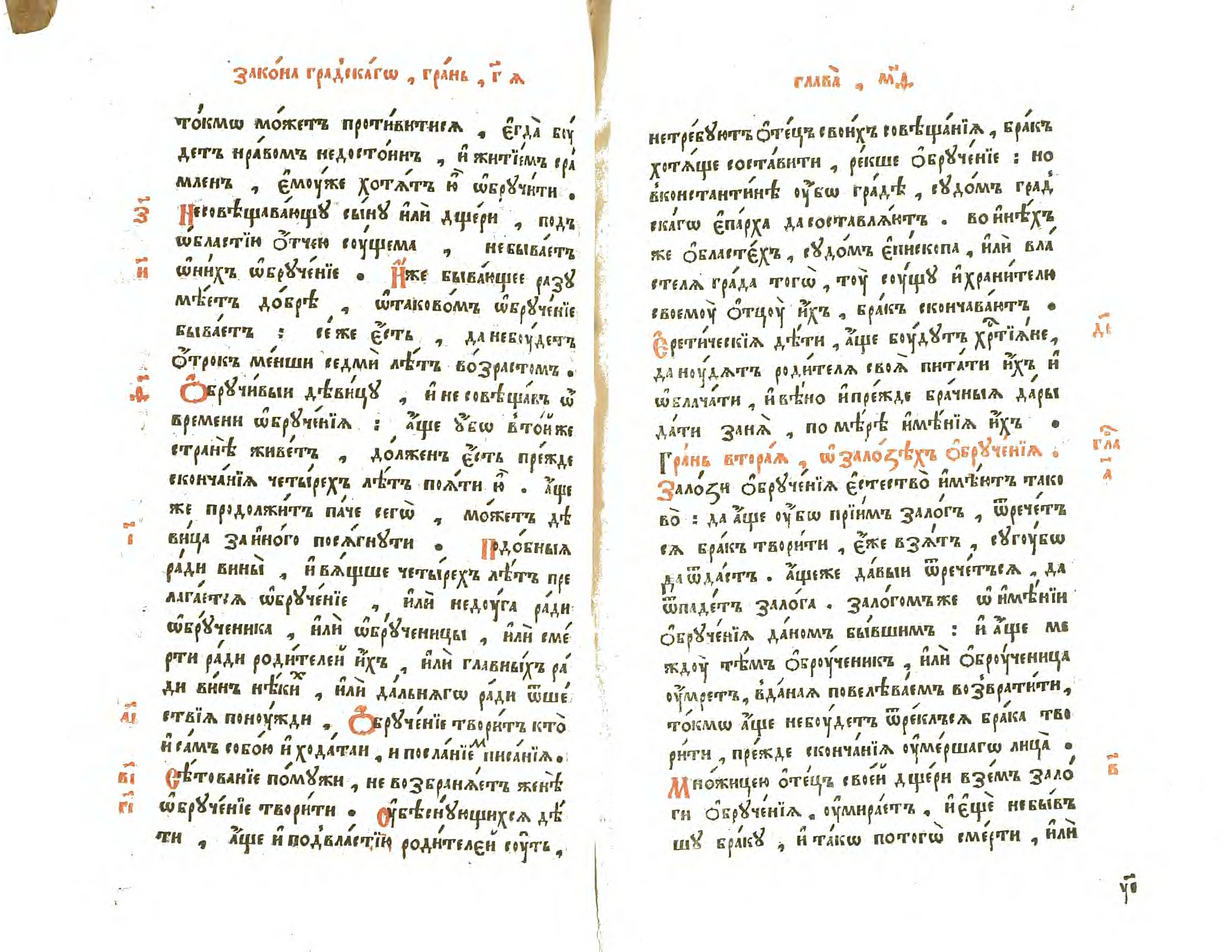 Зако́на гра́дскагѡ , гра́нь , г҃ ꙗ
то́кмѡ мо́жетъ проти́витисѧ , є҆гда̀ бꙋ́
детъ нра́вомъ недосто́инъ , и҆ житїе́мъ сра́
мленъ , є҆моу́же хотѧ́тъ ю҆̀ ѡ҆брꙋчи́ти .
з҃ Несовѣщава́ющꙋ сы́нꙋ и҆лѝ дщери , подъ
ѡ҆бластїю ѻ҆́тчею соу́щема , не быва́етъ
и҃ ѡ҆ ни́хъ ѡ҆брꙋче́нїе . И҆́же быва́ющее разꙋ
мѣ́етъ до́брѣ , ѡ҆ таково́мъ ѡ҆брꙋче́нїе
быва́етъ : се́ же є҆́сть , да небоу́детъ
ѻ҆́трокъ ме́нши седмѝ лѣ́тъ во́зрастомъ .
ѳ҃ Ѻ҆брꙋчи́выи дѣви́цꙋ , и҆ не совѣща́въ ѿ
времени ѡ҆брꙋче́нїѧ : а҆́ще ᲂу҆́бѡ в то́йже
странѣ̀ живе́тъ , до́лженъ є҆́сть пре́жде
сконча́нїѧ четы́рехъ лѣ́тъ поѧ́ти ю҆̀ . а҆́ще
же продолжи́тъ па́че сегѡ̀ , мо́жетъ дѣ
ви́ца за и҆но́го посѧ́гнути . і҃ Подо́бныѧ
ра́ди вины̀ , и҆ вѧ́щше четы́рехъ лѣ́тъ пре
лага́етсѧ ѡ҆брꙋче́нїе , и҆лѝ недоу́га ра́ди
ѡ҆брꙋ́ченика , и҆лѝ ѡ҆брꙋ́ченицы , и҆лѝ сме́
рти ра́ди роди́телей и҆́хъ , и҆лѝ гла́вныхъ ра́
ди ви́нъ нѣ́кихъ , и҆лѝ да́льнѧгѡ ра́ди ѿше́
а҃і ствїѧ поноу́жди , Ѻ҆брꙋче́нїе твори́тъ кто̀
и҆ са́мъ собо́ю и҆ хода́таи , и посла́нїемъ писа́нїѧ .
в҃і Сѣ́тованїе по мꙋ́жи , не возбранѧ́етъ женѣ̀
г҃і ѡ҆брꙋче́нїе твори́ти . Оу҆ бѣснꙋющихсѧ дѣ́
ти , а҆́ще и҆ под̾ вла́стїю роди́телей соу́ть ,
Глава̀ , м҃ѳ
не тре́бꙋютъ ѻ҆те́цъ свои́хъ совѣща́нїѧ , бра́къ
хотѧ́ще соста́вити , ре́кше ѻ҆брꙋче́нїе : но
в константи́нѣ ᲂу҆́бѡ гра́дѣ , сꙋдо́мъ град̾
скагѡ є҆па́рха да составлѧ́ютъ . во и҆нѣ́хъ
же ѻ҆бласте́хъ , сꙋдо́мъ є҆пи́скопа , и҆лѝ вла́
стелѧ гра́да тогѡ̀ , тоу̀ соу́щꙋ и҆ храни́телю
своемоу̀ ѻ҆тцоу̀ и҆́хъ , бра́къ скончава́ютъ .
д҃і Є҆рети́ческїѧ дѣ́ти , а҆́ще боу́дꙋтъ хрⷭ҇тїѧ́не ,
да ноу́дѧтъ роди́телѧ своѧ̀ пита́ти и҆́хъ и҆
ѡ҆блача́ти , и҆ вѣ́но и҆ пре́жде бра́чныѧ да́ры
да́ти за нѧ̀ , по мѣ́рѣ и҆мѣ́нїѧ и҆́хъ .
Гра́нь втора́ѧ , ѡ҆ зало́ѕѣхъ ѻ҆брꙋче́нїѧ . гла
а҃ Зало́ѕи ѻ҆брꙋче́нїѧ є҆стество̀ и҆мѣ́ютъ тако
во̀ : да а҆́ще ᲂу҆́бѡ прїи́мъ зало́гъ , ѿрече́тъ
сѧ бра́къ твори́ти , є҆́же взѧ́тъ , сꙋгоу́бѡ
да ѿда́стъ . а҆́щеже да́выи ѿрече́тъсѧ , да
ѿпаде́тъ зало́га . зало́гомъ же ѡ҆ и҆мѣ́нїи
ѻ҆брꙋче́нїѧ да́номъ бы́вшимъ : и҆ а҆́ще ме
ждоу̀ тѣ́мъ ѻ҆броу́ченикъ , и҆лѝ ѻ҆броу́ченица
ᲂу҆́мретъ , в̾да́наѧ повелѣва́емъ возврати́ти ,
то́кмѡ а҆́ще небоу́детъ ѿре́клъсѧ бра́ка тво
ри́ти , пре́жде сконча́нїѧ ᲂу҆ме́ршагѡ лица̀ .
в҃ Мно́жицею ѻ҆те́цъ свое́й дще́ри взе́мъ зало́
ги ѻ҆брꙋче́нїѧ , ᲂу҆мира́етъ , и҆ є҆щѐ не бы́в
шꙋ бра́кꙋ , и҆ та́кѡ по тогѡ̀ сме́рти , и҆лѝ
ꙋ҃о